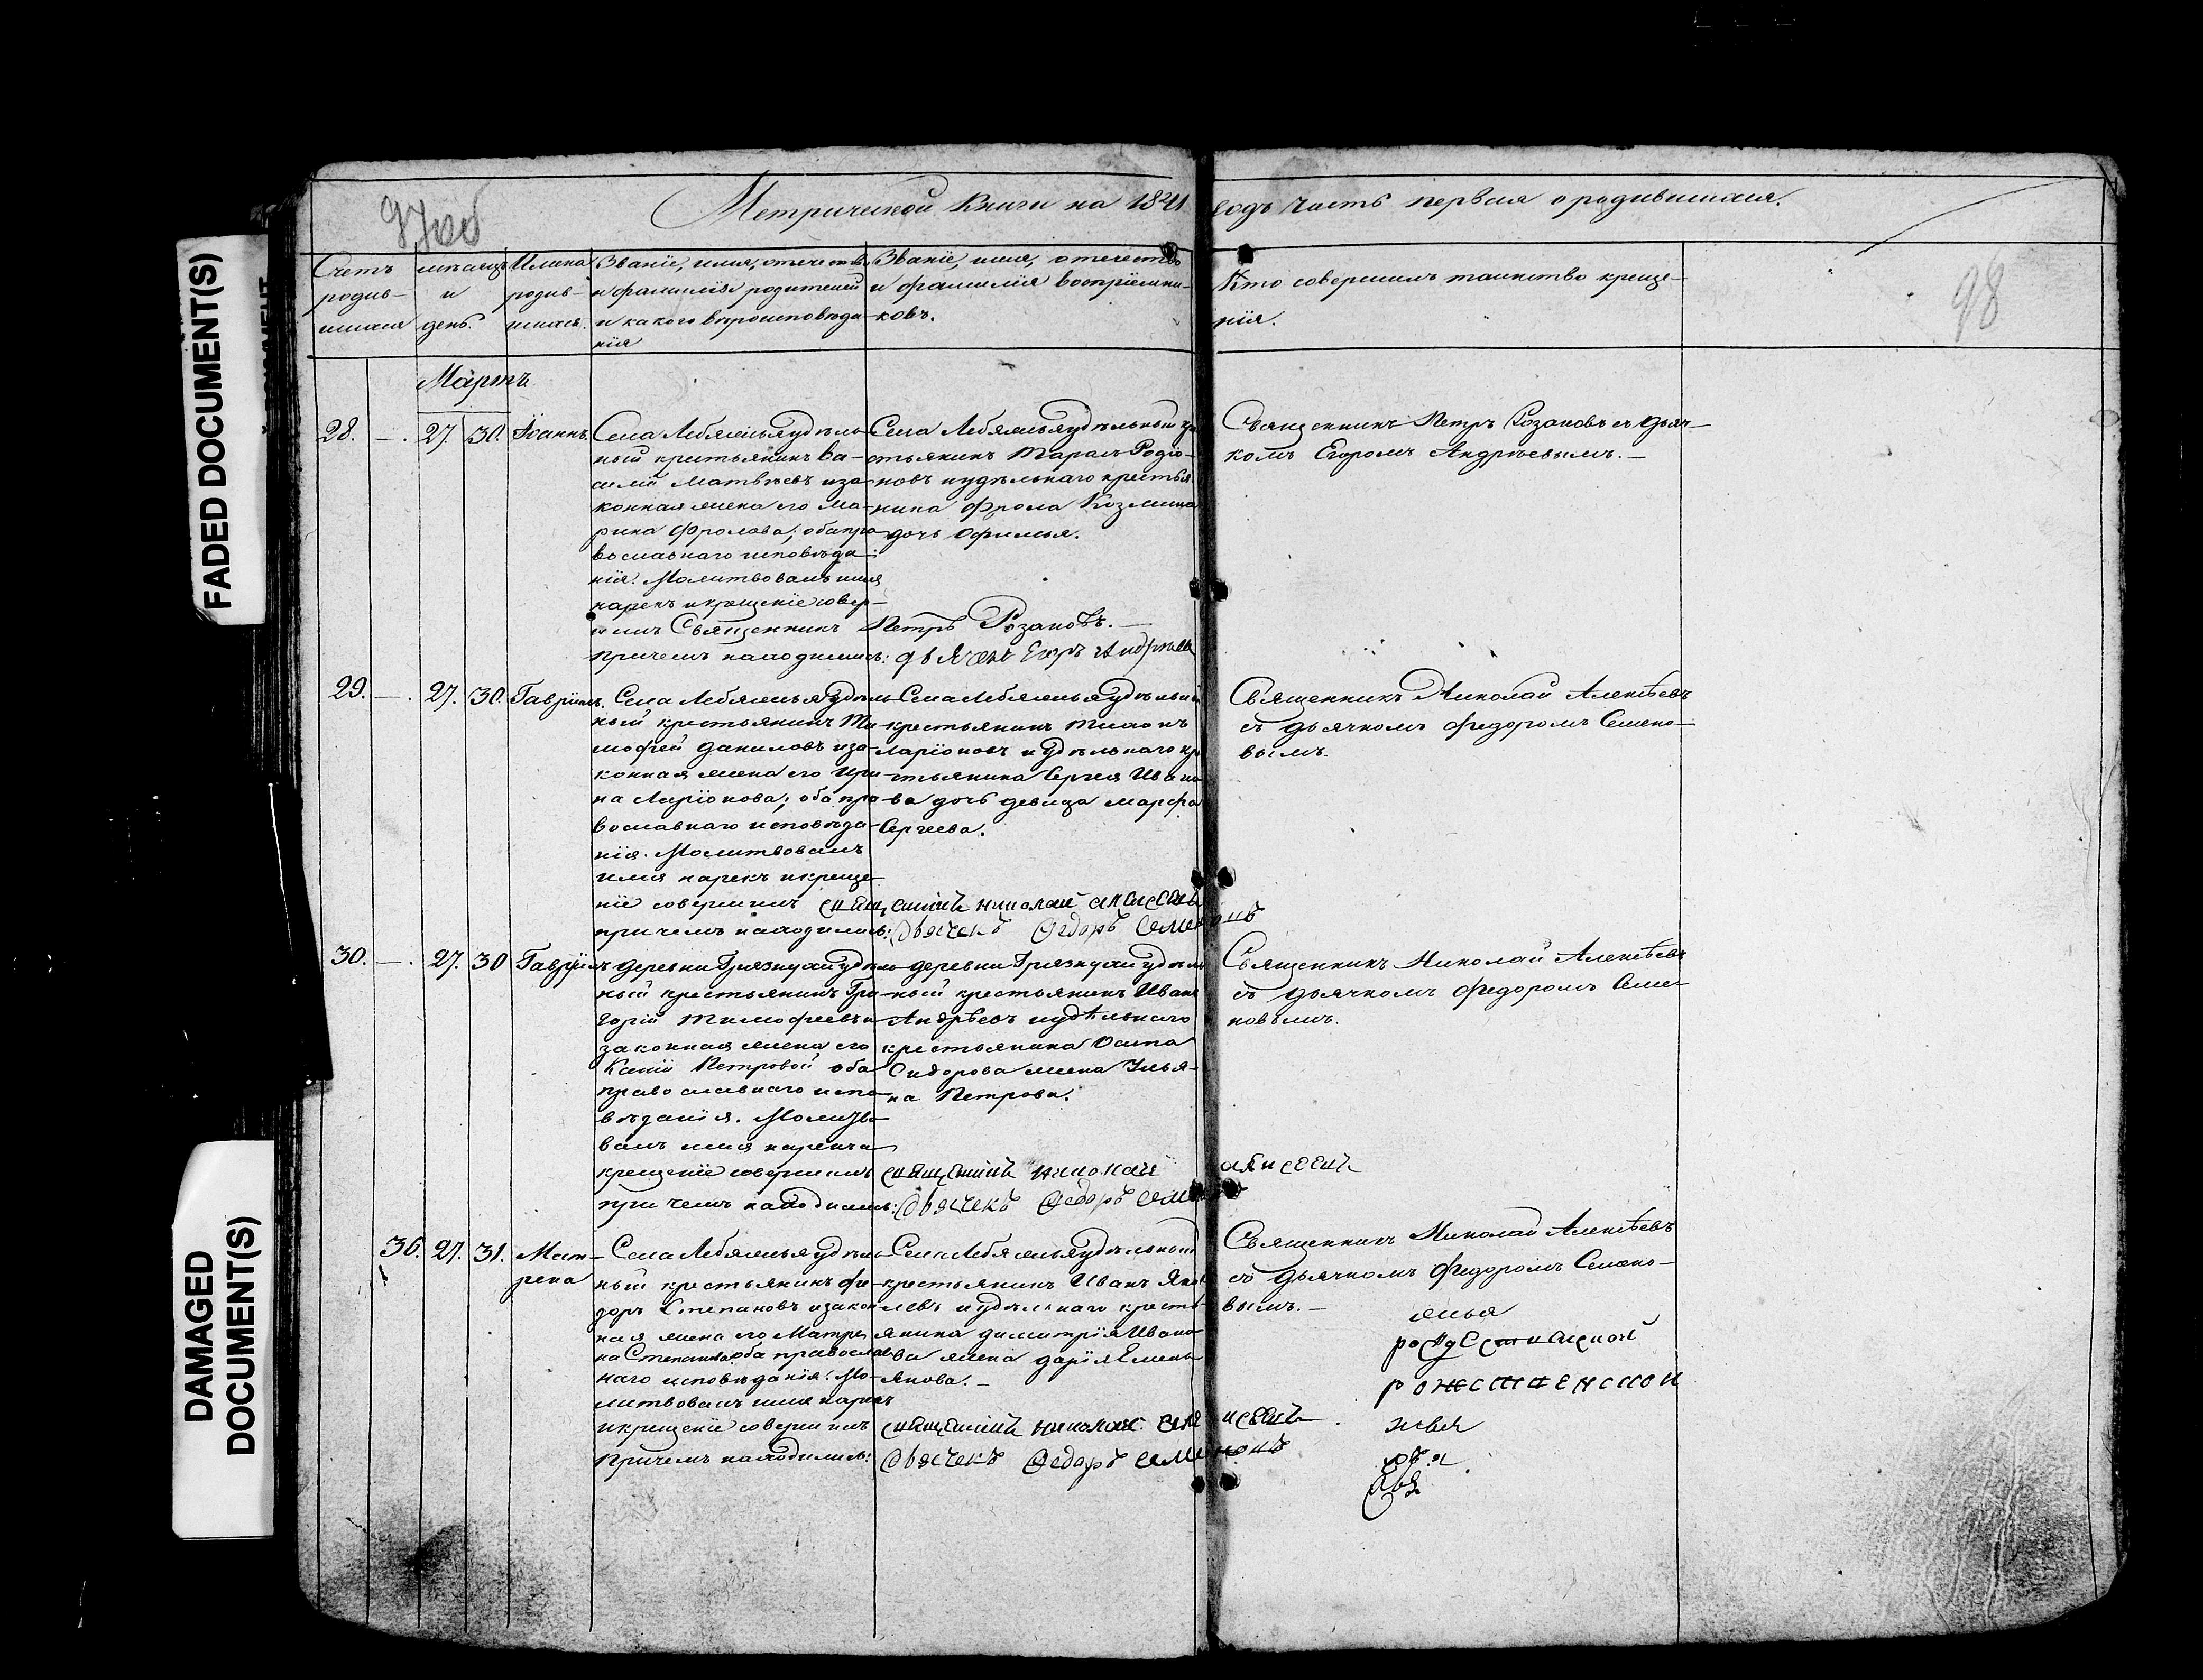 97об
Метрической Книги на 1841 годъ часть первая о родившихся.
98
Счетъ родив-шихся
мѣсяцъ и день.
Имена родив-шихся.
Званїе, имя, отечество
и фамилїя родителей
и какого вѣроисповѣда-
нїя
Званїе, имя, отечество
и фамилїя воспрїемни-
ковъ.
Кто совершилъ таинство креще-
нїя.
Мартъ
28. — . 27. 30. Іоаннъ.
Села Лебяжья удѣль-
ный крестьянинъ Ва-
силїй Матвѣевъ и за-
конная жена его Ма-
рина Фролова; оба пра-
вославнаго исповѣда-
нїя. Молитвовалъ имя
нарекъ и крещенїе совер-
шилъ Священникъ Петръ Розановъ. —
Причемъ находились: дьячекъ Егоръ Андреевъ
Села Лебяжья удѣльный кре-
стьянинъ Тарасъ Родіо-
новъ и удѣльнаго крестья-
нина Фрола Козмина
дочь Офимья.
Священникъ Петръ Розановъ съ дьяч-
комъ Егоромъ Андрѣевымъ. —
29. — . 27. 30. Гаврїилъ.
Села Лебяжья удѣль-
ный крестьянинъ Ти-
мофей Даниловъ и за-
конная жена его Ири-
на Ларїонова; оба пра-
вославнаго исповѣда-
нїя. Молитвовалъ
имя нарекъ и креще-
нїе совершилъ священникъ николай алексеевъ
причемъ находились: Дьячекъ Федоръ Семеновъ
Села Лебяжья удѣльный
крестьянинъ Тихонъ
Ларїоновъ и удѣльнаго кре-
стьянина Сергея Ивано-
ва дочь девица Марфа
Сергеева.
Священникъ Николай Алексѣевъ
съ дьячкомъ Федоромъ Семено-
вымъ.
30. — . 27. 30 Гаврїилъ
деревни Грязнухи удѣль-
ный крестьянинъ Гри-
горїй Тимофеевъ и
законная жена его
Ксенїи Петровой оба
православнаго испо-
вѣданїя. Молитво-
валъ имя нарекъ и
крещенїе совершилъ священникъ николай алексеевъ
при чемъ находились: Дьячекъ Федоръ Семе
деревни Грязнухи удѣль-
ный крестьянинъ Иванъ
Андрѣевъ и удѣльнаго
крестьянина Осипа
Сидорова жена Улья-
на Петрова.
Священникъ Николай Алексѣевъ
съ дьячкомъ Федоромъ Семе-
новымъ.
36. 27. 31. Мат-
рена
Села Лебяжья удѣль-
ный крестьянинъ Фе-
доръ Степановъ и закон-
ная жена его Матре-
на Степанова оба православ-
наго исповѣданїя. Мо-
литвовалъ имя нарекъ
и крещенїе совершилъ священникъ николай алексеевъ
Причемъ находились: Дьячекъ Федоръ Семеновъ
Села Лебяжья удѣльной
крестьянинъ Иванъ Яков-
левъ и удѣльнаго кресть-
янина Димитрїя Ивано-
ва жена Дарїя Емель-
янова. —
Священникъ Николай Алексѣевъ
съ дьячкомъ Федоромъ Семено-
вымъ. —
FADED DOCUMENT(S)
DAMAGED
DOCUMENT(S)